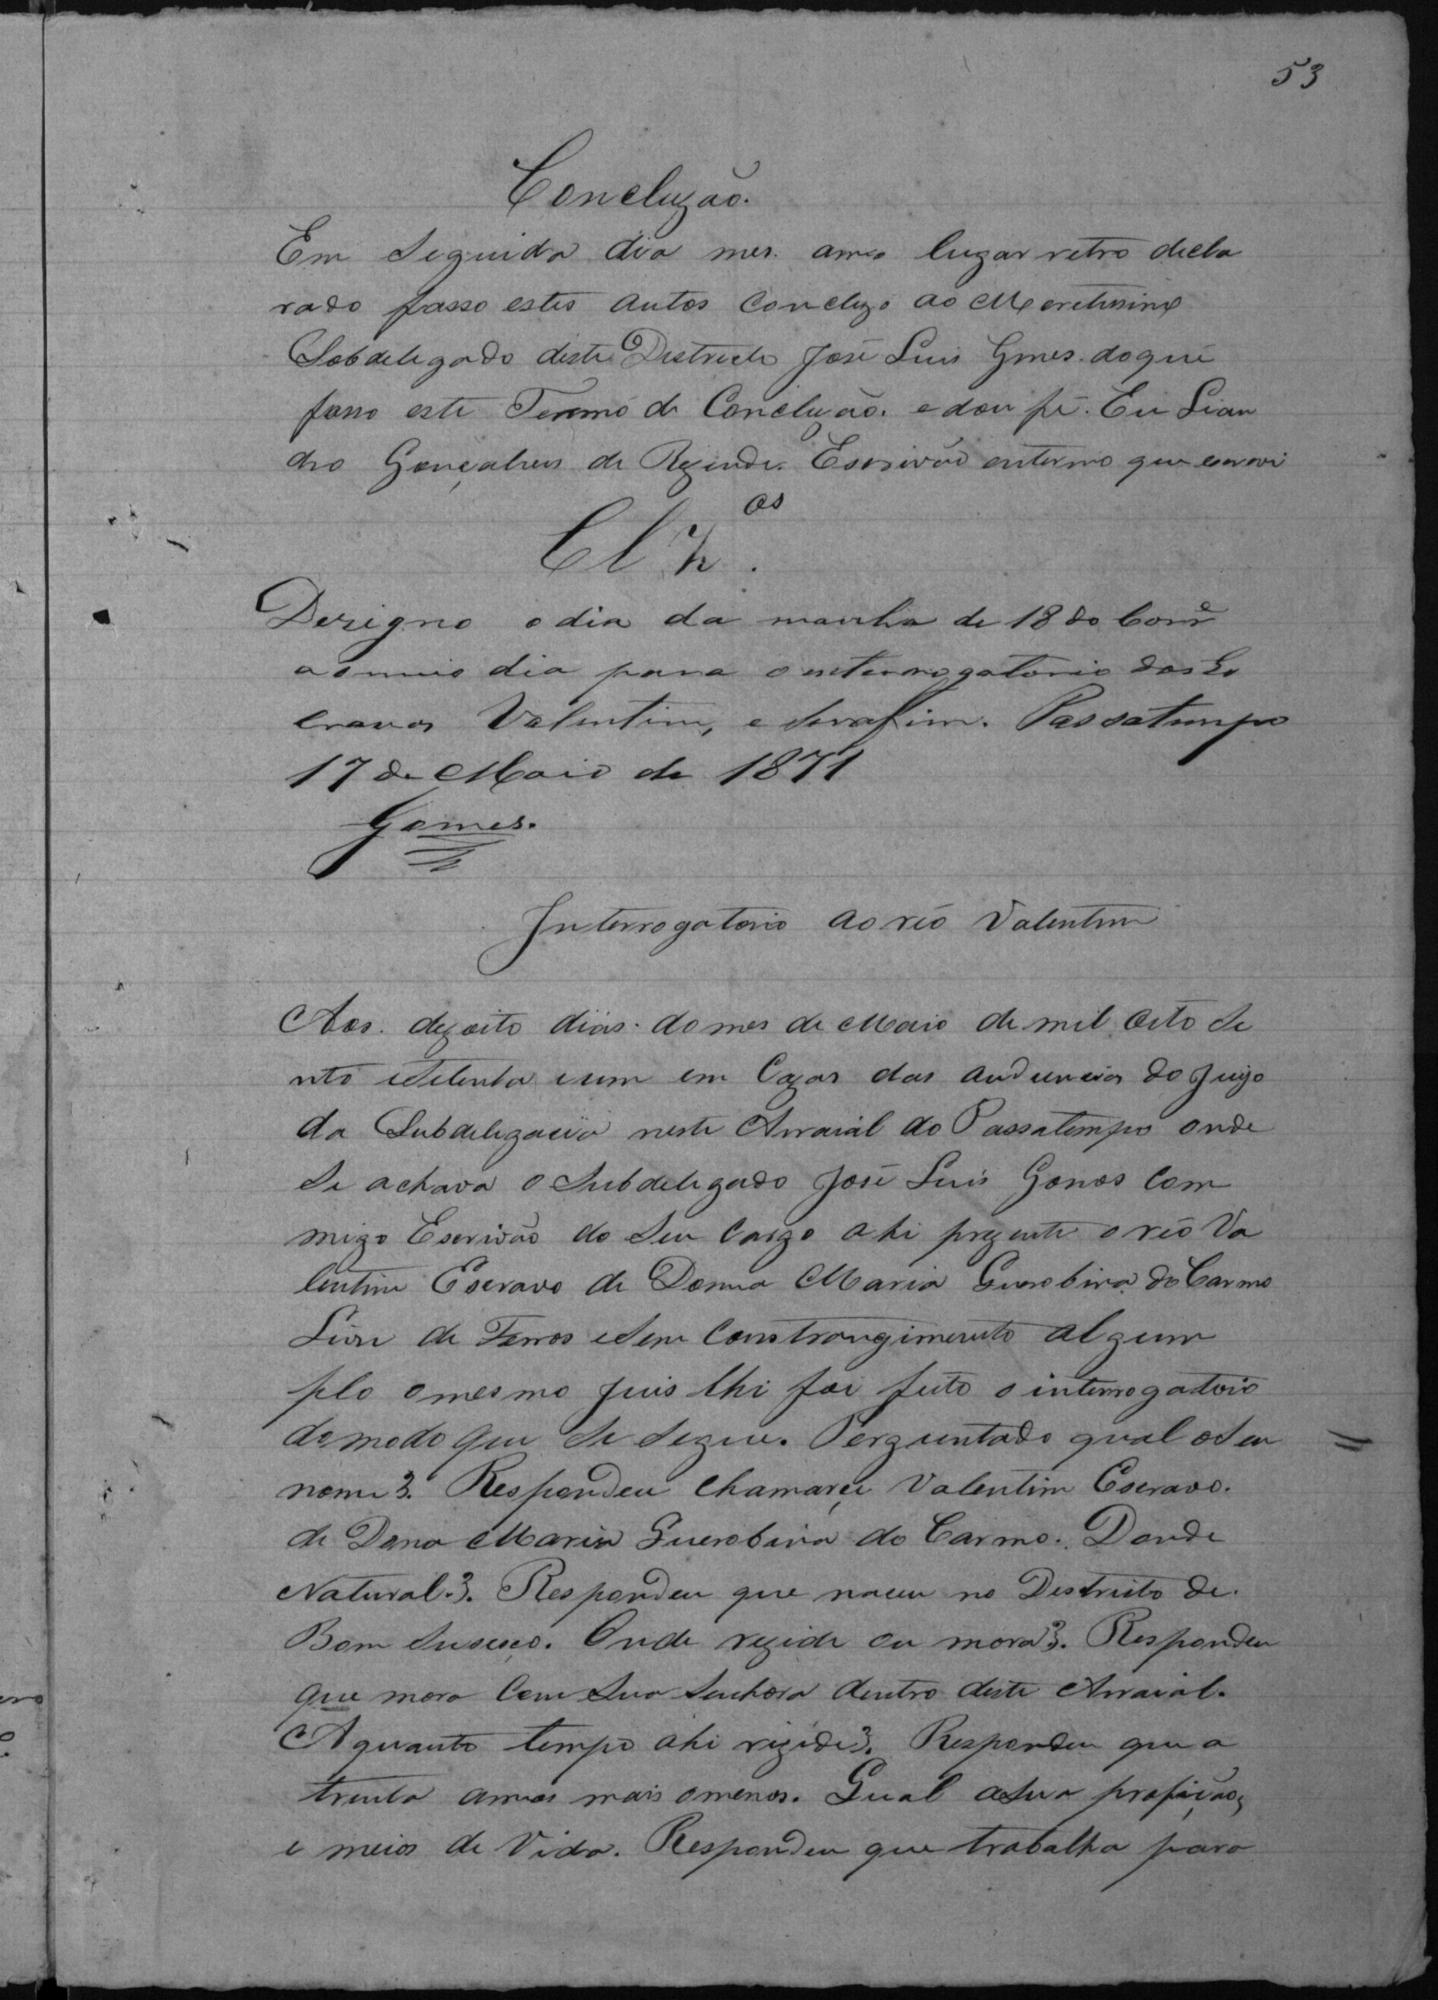 53
Concluzão.
Em Seguida dia mes. anno lugar retro decla
rado passo estes autos Concluzo ao Meretissimo
Sobdelegado deste Districto José Luis Gmes. do que
fasso este Termo de Concluzão. e dou fé. Eu Lian
dro Gonçalves de Rezende. Escrivão enterino que escrevi
Clz.os
Dezigno o dia da manha de 18 do Corr.e
ao meio dia para o enterrogatorio dos Es
cravos Valentim, e Serafim. Passatempo
17 de Maio de 1871
Gomes.
Interrogatorio ao reo Valentim
Aos. dezoito dias. do mes de Maio de mil oito Se
nto eSetenta eum em Cazas das audiencias do Juizo
da Subdelegacia neste Arraial do Passatempo onde
Se achava o Subdelegado José Luis Gomes Com
migo Escrivão do Seu Cargo ahi prezente o reo Va
lentim Escravo de Donna Maria Guerobina do Carmo
Livre de Ferros eSem Constrangimento algum
plo o mesmo Juis lhi foi feito o interrogatorio
do modo que Se Segue. Perguntado qual oSeu
nome?. Respondeu chamarçe Valentim Escravo.
de Dona Maria Guerobina do Carmo. Donde
Natural.?. Respondeu que naceu no Destricto de.
Bom Suseço. Onde rezide ou mora?. Respondeu
que mora Com Sua Senhora dentro deste Arraial.
Aquanto tempo ahi rezide?. Respondeu que a
trenta annos mais omenos. Qual aSua profição,
e meios de Vida. Respondeu que trabalha para